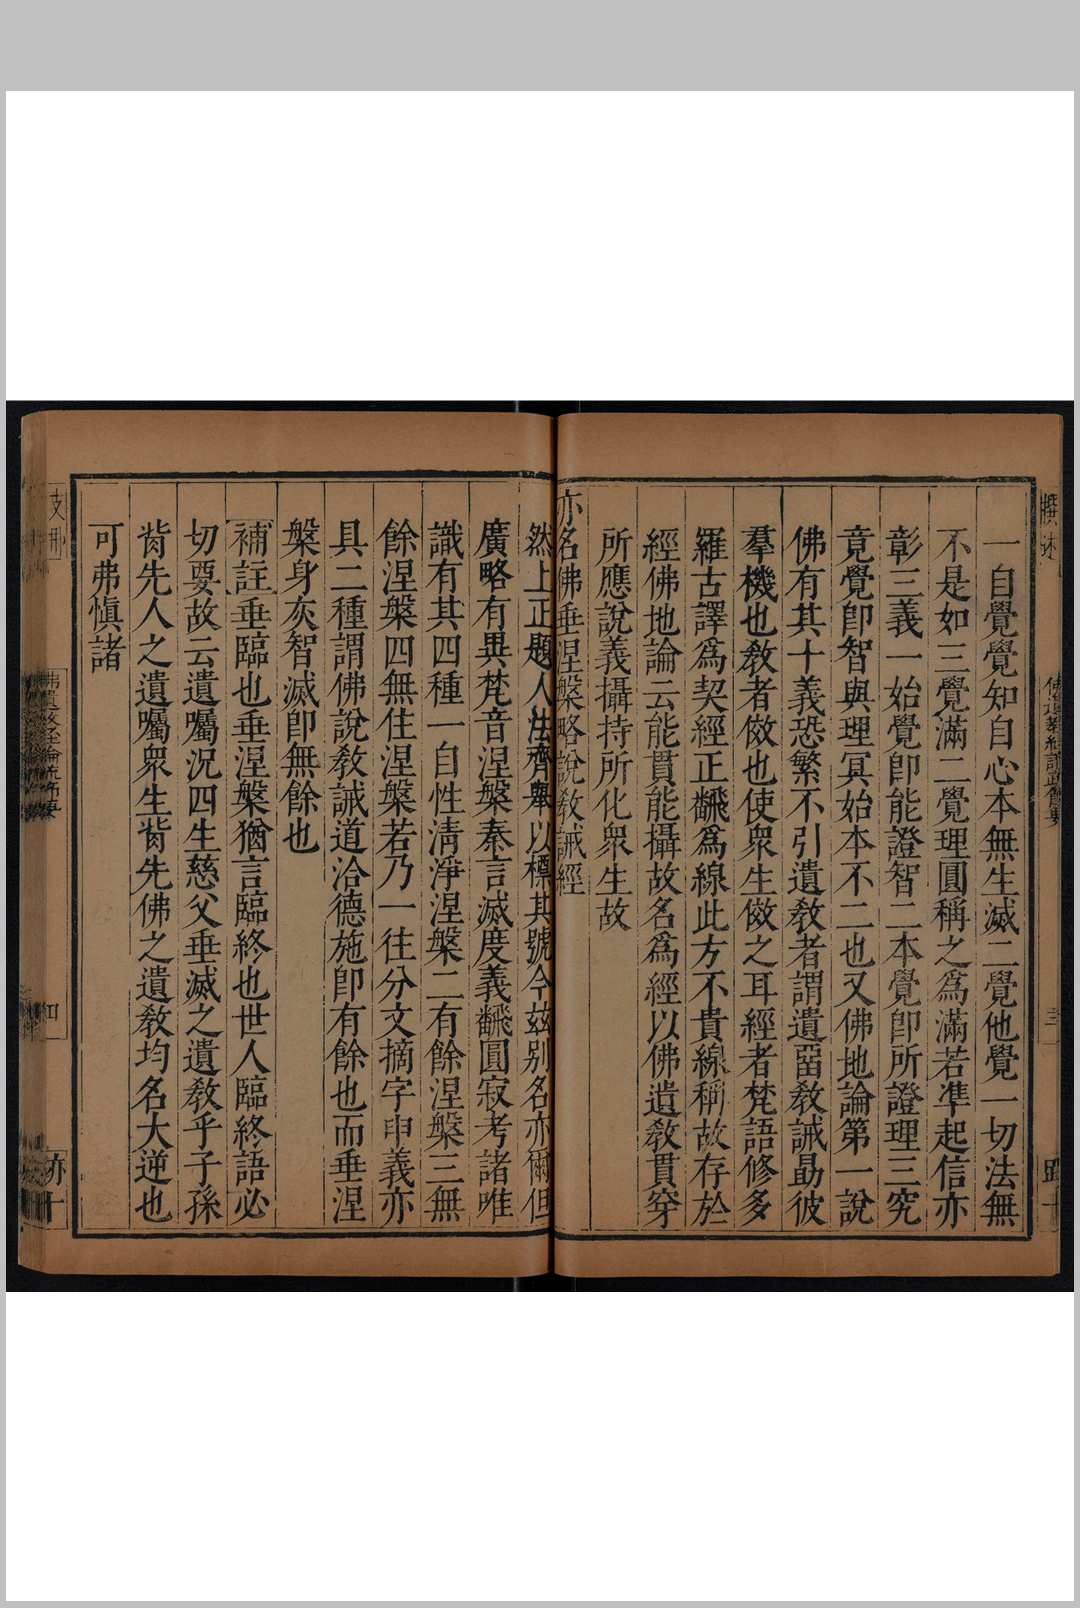 一自覺覺知自心本無生滅二覺他覺一切法無
不是如三覺滿二覺理圓稱之為滿若準起信亦
彰三義一始覺卽能證智二本覺卽所證理三究
竟覺卽智與理冥始本不二也又佛地論第一說
佛有其十義恐繁不引遺敎者謂遺留敎誡勗彼
羣機也敎者傚也使眾生傚之耳經者梵語修多
羅古譯為契經正飜為線此方不貴線稱故存於
經佛地論云能貫能攝故名為經以佛遺敎貫穿
所應說義攝持所化眾生故
亦名佛垂涅槃略說敎誡經
然上正題人法齊舉以標其號今茲別名亦爾但
廣略有異梵音涅槃秦言滅度義飜圓寂考諸唯
識有其四種一自性清淨涅槃二有餘涅槃三無
餘涅槃四無住涅槃若乃一往分文摘字申義亦
具二種謂佛說敎誡道洽德施卽有餘也而垂涅
槃身灰智滅卽無餘也
補註垂臨也垂涅槃猶言臨終也世人臨終語必
切要故云遺囑況四生慈父垂滅之遺敎乎子孫
背先人之遺囑眾生背先佛之遺敎均名大逆也
可弗愼諸
四